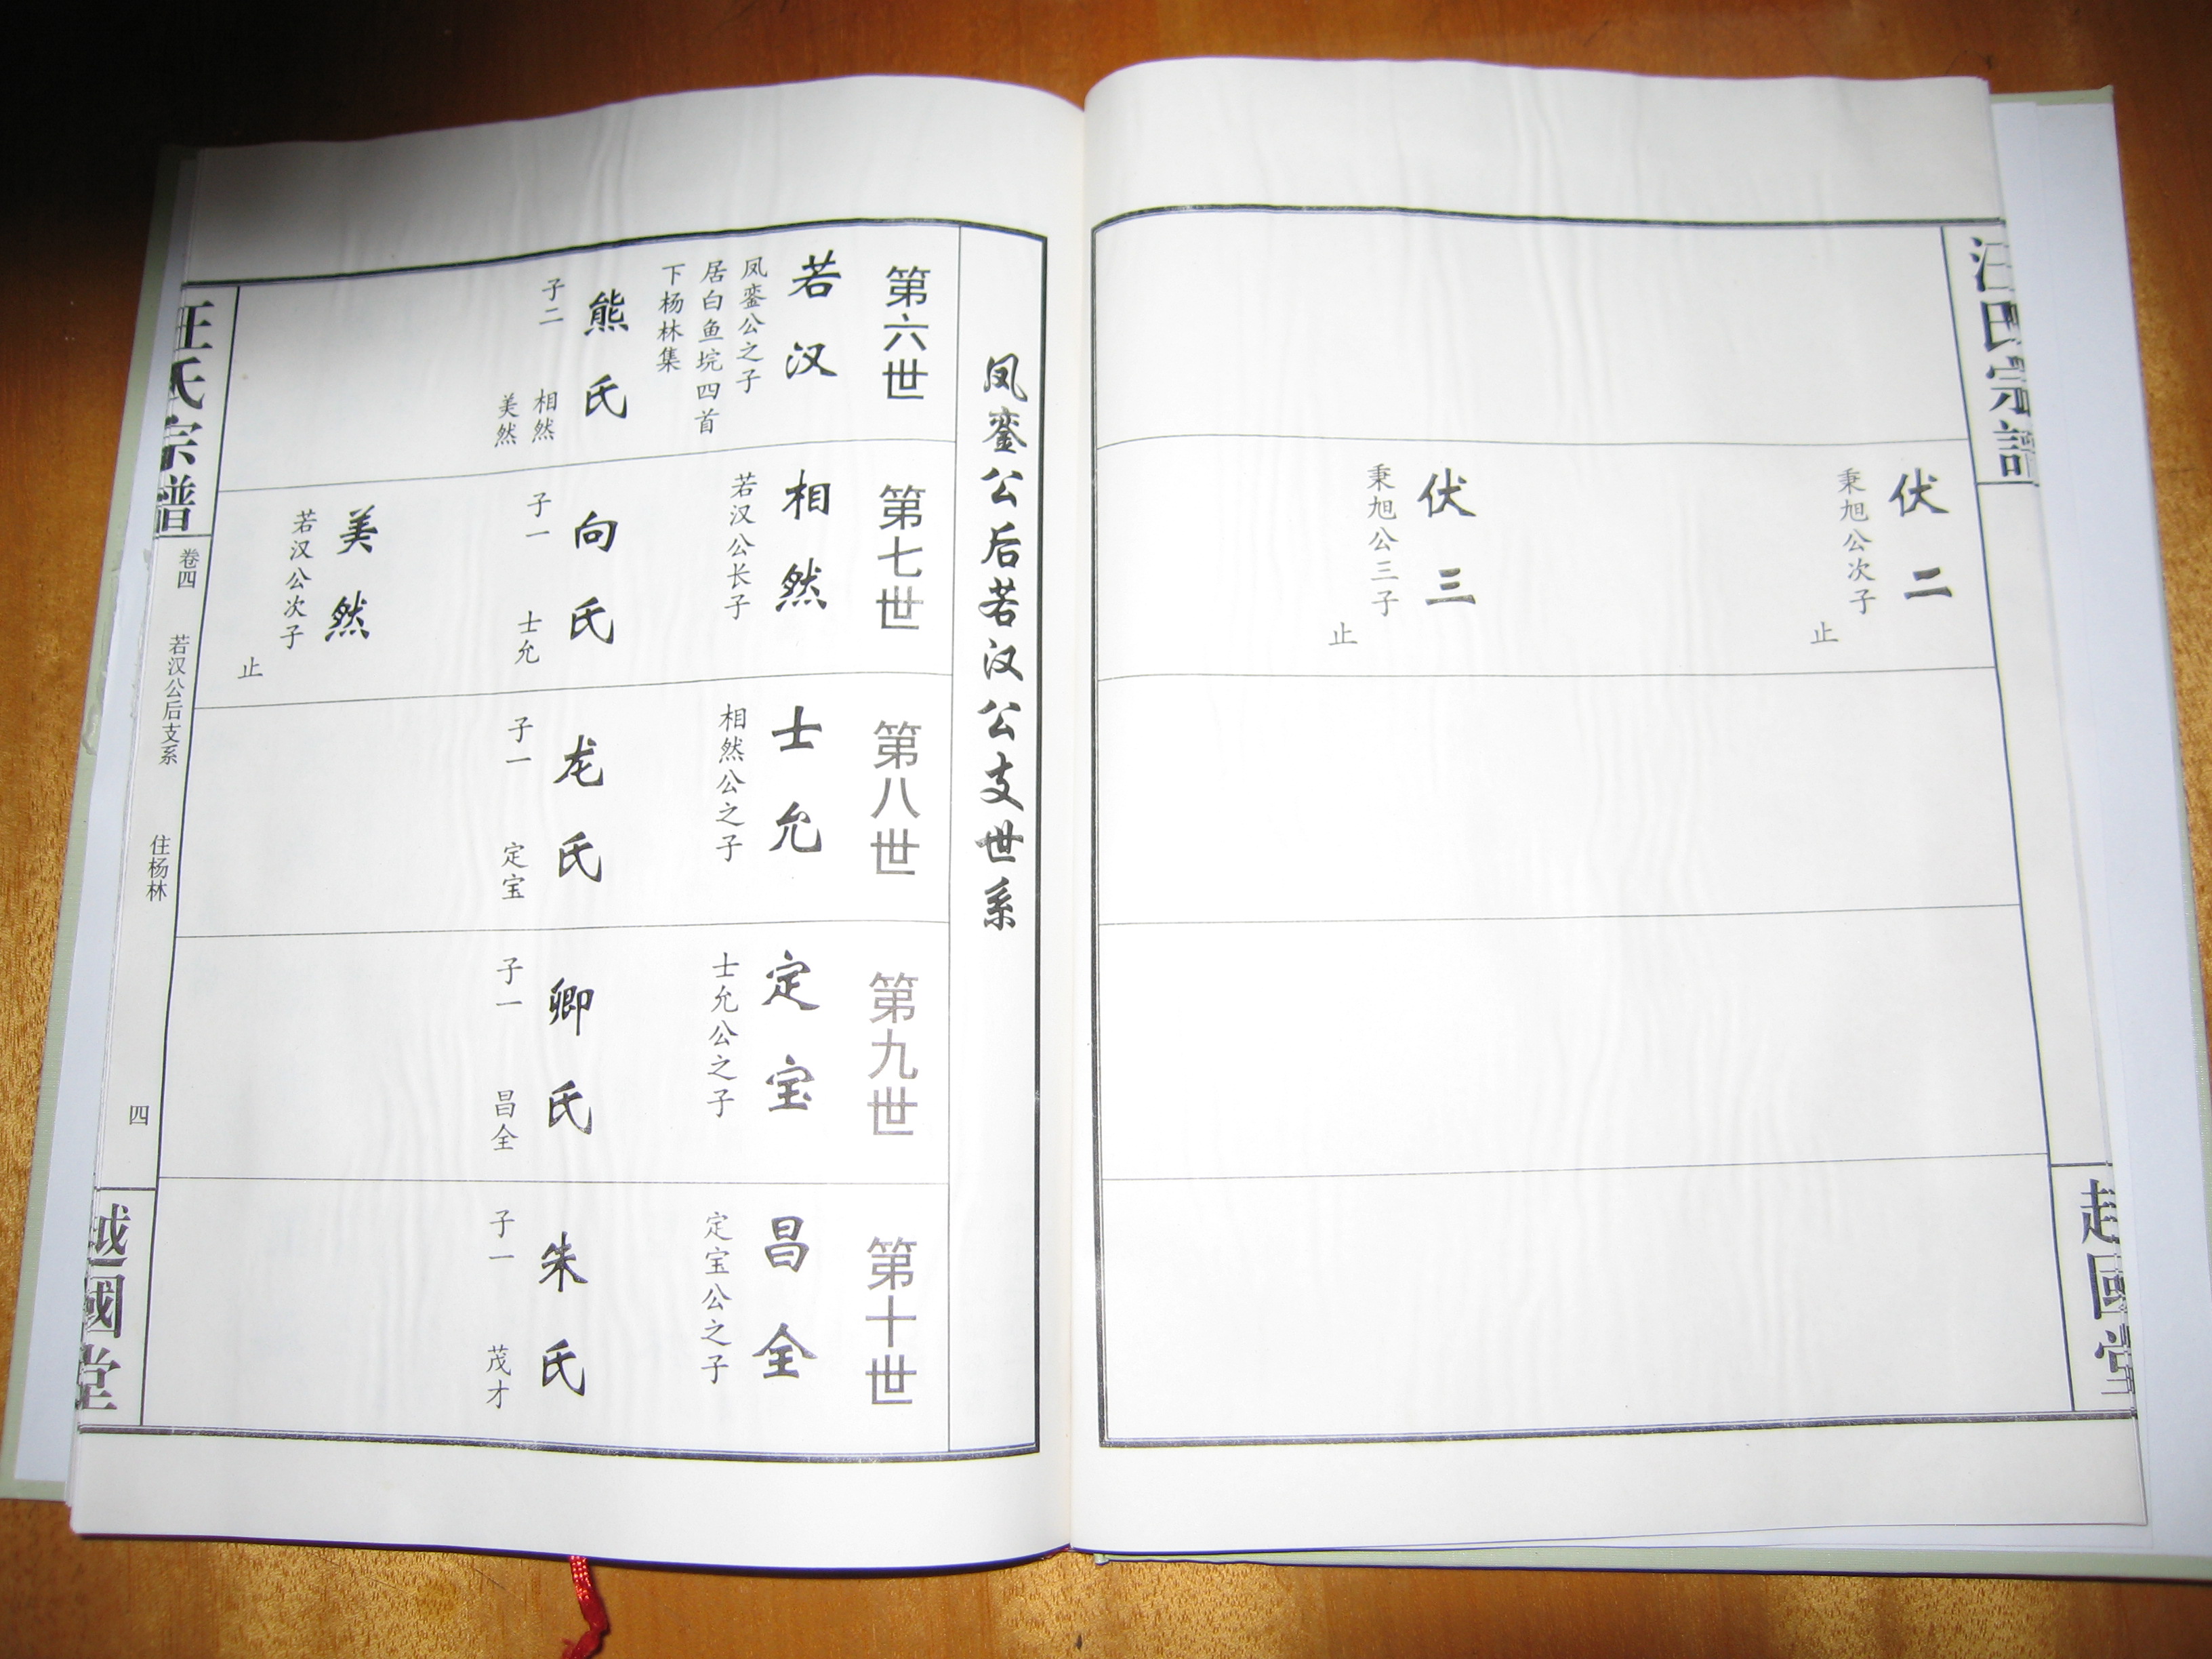 汪氏宗譜
伏二
秉旭公次子
止
伏三
秉旭公三子
止
越國堂
凤銮公后若汉公支世系
第六世
若汉
凤銮公之子
居白鱼垸四首
下杨林集
熊氏
子二
相然
美然
第七世
相然
若汉公长子
向氏
子一
士允
美然
若汉公次子
止
第八世
士允
相然公之子
龙氏
子一
定宝
第九世
定宝
士允公之子
卿氏
子一
昌全
第十世
昌全
定宝公之子
朱氏
子一
茂才
汪氏宗譜
卷四
若汉公后支系
住杨林
四
越國堂